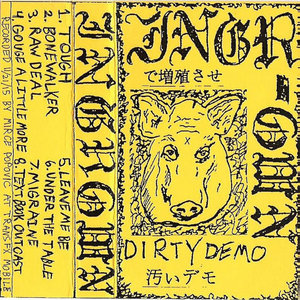 1. TOUGH
2. BONEWALKER
3. RAW DEAL
4. GOUGE A LITTLE MORE
5. LEAVE ME BE
6. UNDER THE TABLE
7. MIGRAINE
8. TEXTBOOK OUTCAST
RECORDED 11/21/15 BY MIRCE POPOVIC AT TRANS FX MOBILE
INGROWN
INGR-OWN
で増殖させ
DIRTY DEMO
汚いデモ